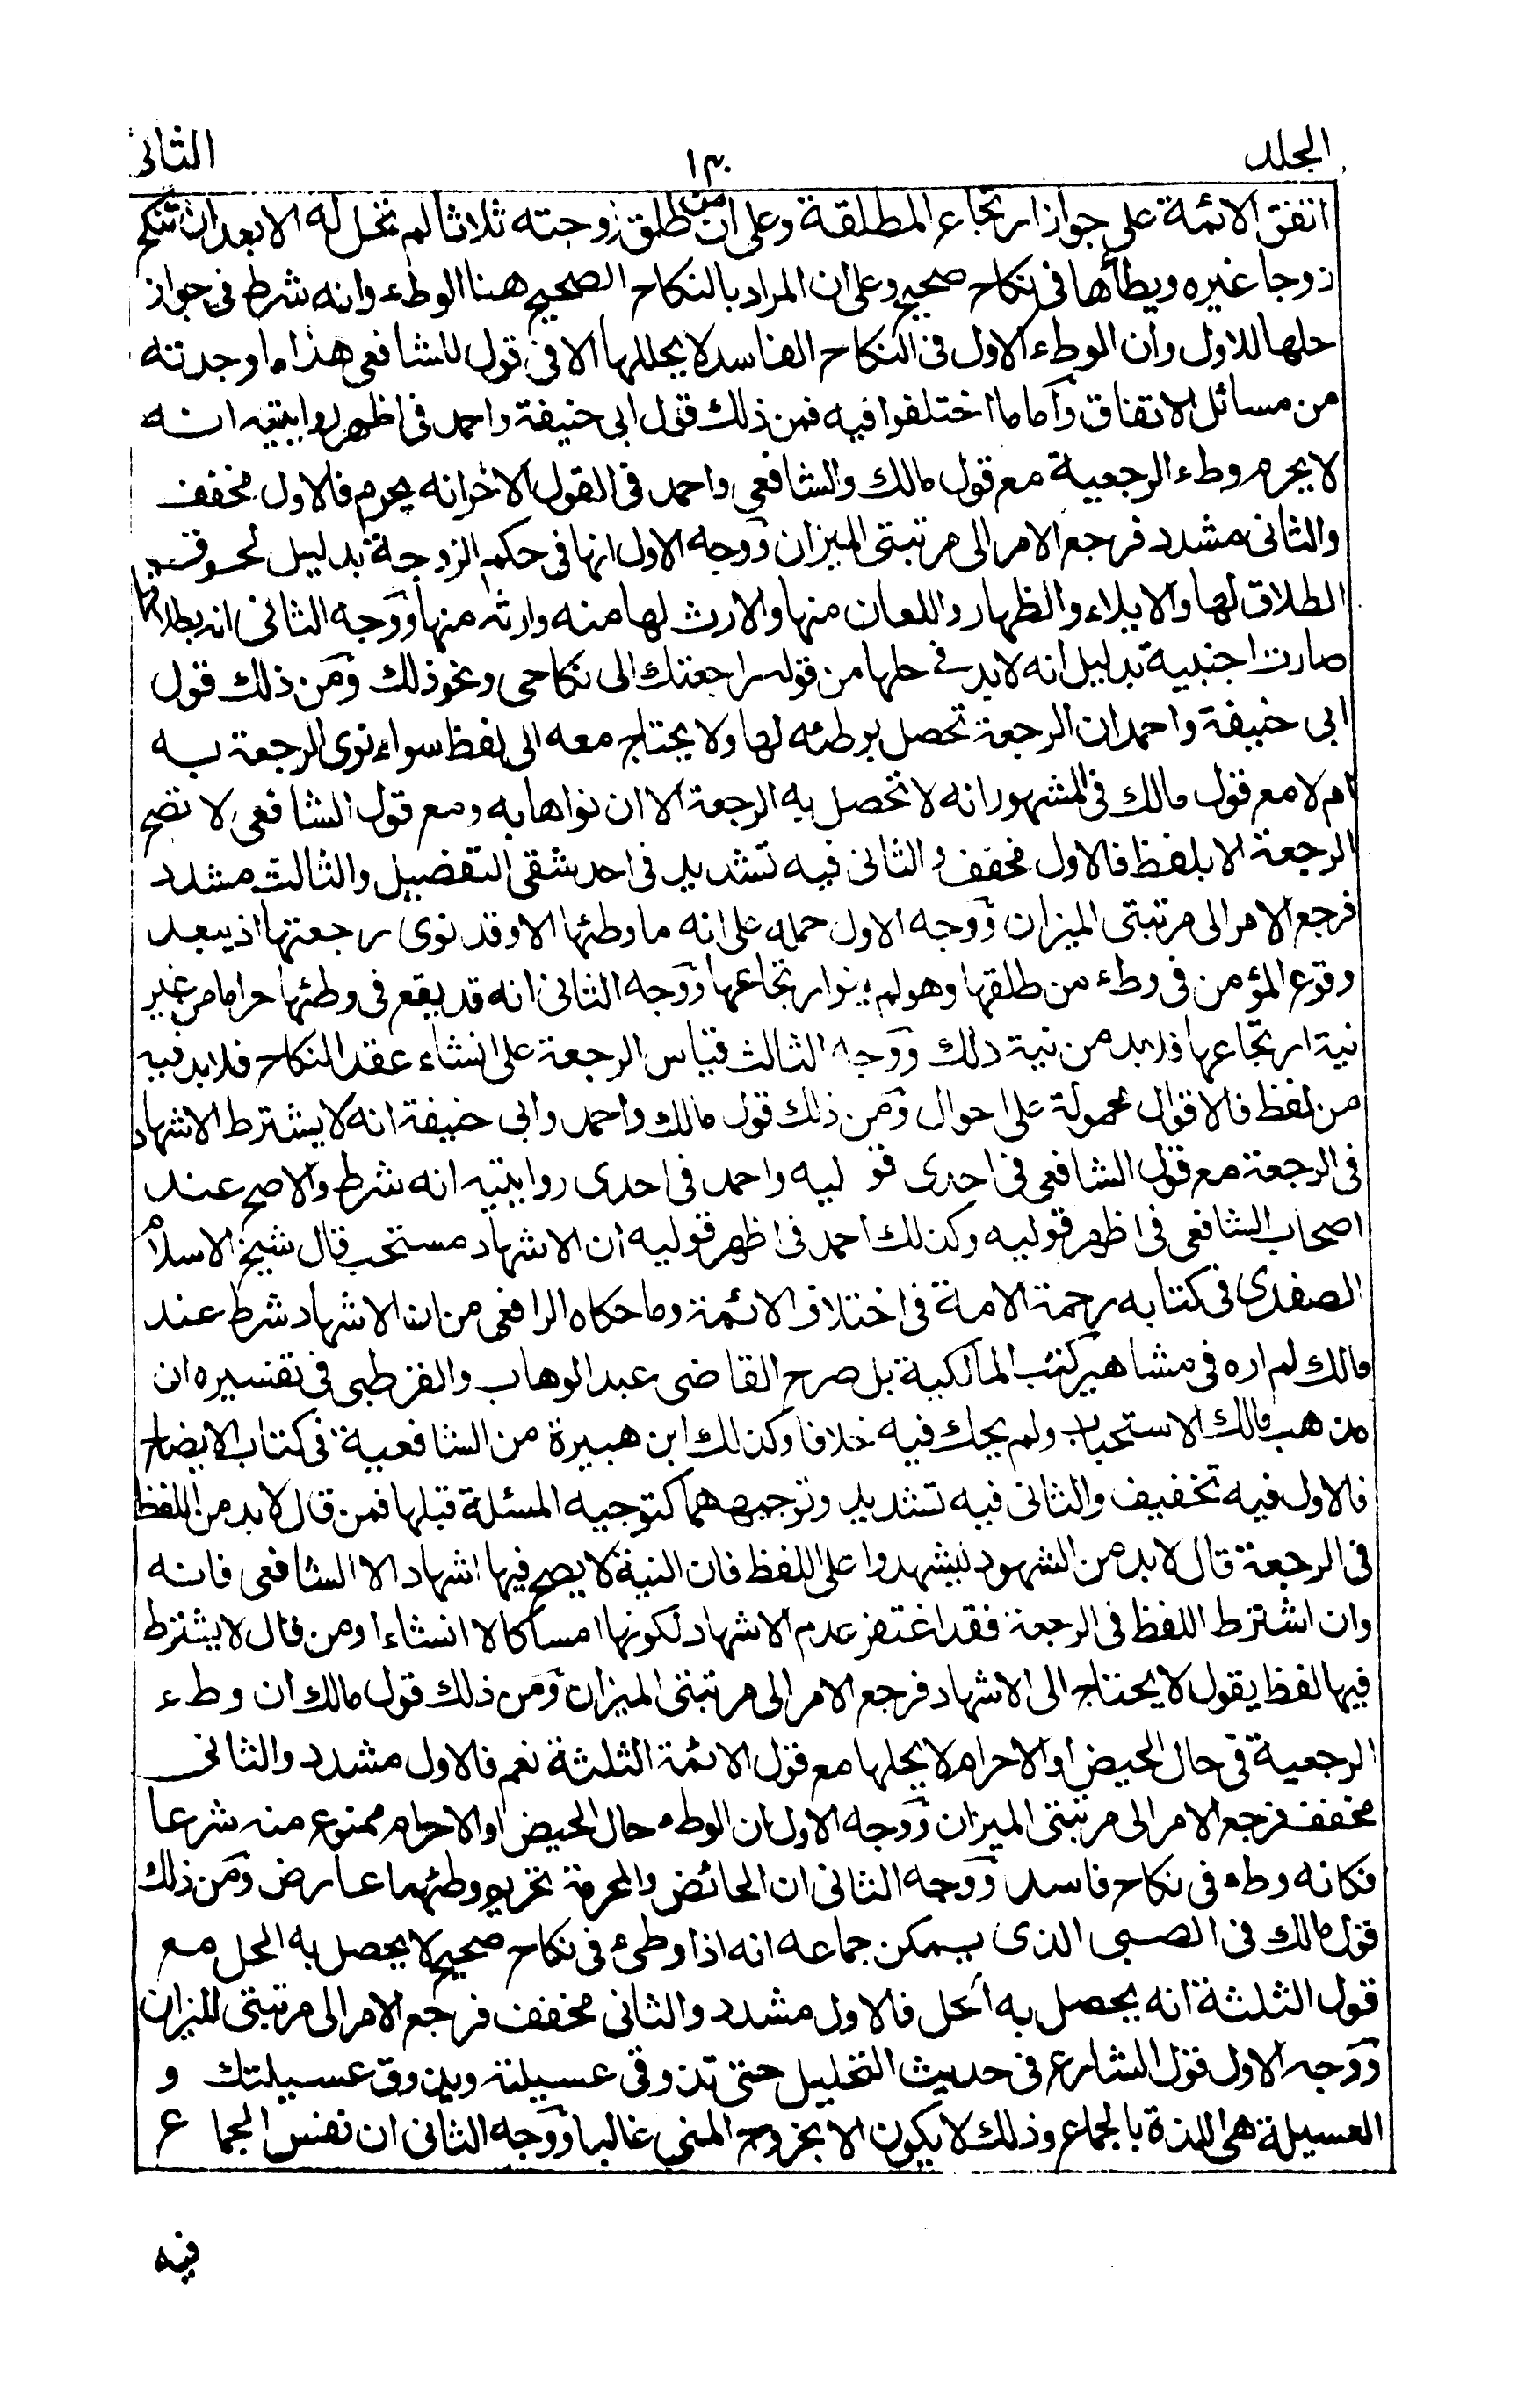 الجلد ١٣٠ الثانى
اتفق الائمة على جواز ارتجاع المطلقة وعلى ان من طلق زوجته ثلاثا لم تحل له الا بعد ان تنكح
زوجا غيره ويطأها فى نكاح صحيح وعلى ان المراد بالنكاح الصحيح هنا الوطء وانه شرط فى جواز
حلها للاول وان الوطء الاول فى النكاح الفاسد لا يحللها الا فى قول للشافعى هذا ما وجدته
من مسائل الاتفاق وأما ما اختلفوا فيه فمن ذلك قول ابى حنيفة واحمد فى اظهر روايتيه انه
لا يحرم وطء الرجعية مع قول مالك والشافعى واحمد فى القول الاخر انه يحرم فالاول مخفف
والثانى مشدد فرجع الامر الى مرتبتى الميزان ووجه الاول انها فى حكم الزوجة بدليل لحوق
الطلاق لها والايلاء والظهار واللعان منها والارث لها منه وارثه منها ووجه الثانى انه بطلاقها
صارت اجنبية بدليل انه لا بد فى حلها من قوله راجعتك الى نكاحى ونحو ذلك ومن ذلك قول
ابى حنيفة واحمد ان الرجعة تحصل بوطئه لها ولا يحتاج معه الى لفظ سواء نوى الرجعة به
ام لا مع قول مالك فى المشهور انه لا تحصل به الرجعة الا ان نواها به ومع قول الشافعى لا تصح
الرجعة الا بلفظ فالاول مخفف والثانى فيه تشديد فى احد شقى التفصيل والثالث مشدد
فرجع الامر الى مرتبتى الميزان ووجه الاول حمله على انه ما وطئها الا وقد نوى رجعتها اذ يبعد
وقوع المؤمن فى وطء من طلقها وهو لم ينو ارتجاعها ووجه الثانى انه قد يقع فى وطئها حراما من غير
نية ارتجاعها فلابد من نية ذلك ووجه الثالث قياس الرجعة على انشاء عقد النكاح فلابد فيه
من لفظ فالاقوال محمولة على احوال ومن ذلك قول مالك واحمد وابى حنيفة انه لا يشترط الاشهاد
فى الرجعة مع قول الشافعى فى احدى قو ليه واحمد فى احدى روايتيه انه شرط والاصح عند
اصحاب الشافعى فى اظهر قوليه وكذلك احمد فى اظهر قوليه ان الاشهاد مستحب قال شيخ الاسلام
الصفدى فى كتابه رحمة الامة فى اختلاف الائمة وما حكاه الرافعى من ان الاشهاد شرط عند
مالك لم اره فى مشاهير كتب المالكية بل صرح القاضى عبد الوهاب والقرطبى فى تفسيره ان
مذهب مالك الاستحباب ولم يحك فيه خلافا وكذلك ابن هبيرة من الشافعية فى كتاب الايضاح
فالاول فيه تخفيف والثانى فيه تشديد وتوجيههما كتوجيه المسئلة قبلها فمن قال لا بد من اللفظ
فى الرجعة قال لا بد من الشهود ليشهدوا على اللفظ فان النية لا يصح فيها اشهاد الا الشافعى فانه
وان اشترط اللفظ فى الرجعة فقد اغتفر عدم الاشهاد لكونها امساكا لا انشاءا ومن قال لا يشترط
فيها لفظ يقول لا يحتاج الى الاشهاد فرجع الامر الى مرتبتى الميزان ومن ذلك قول مالك ان وطء
الرجعية فى حال الحيض او الاحرام لا يحلها مع قول الائمة الثلثة نعم فالاول مشدد والثانى
مخفف فرجع الامر الى مرتبتى الميزان ووجه الاول ان الوطء حال الحيض او الاحرام ممنوع منه شرعا
فكانه وطء فى نكاح فاسد ووجه الثانى ان الحائض والمحرمة تحريم وطئهما عارض ومن ذلك
قول مالك فى الصبى الذى يمكن جماعه انه اذا وطىء فى نكاح صحيح لا يحصل به الحل مع
قول الثلثة انه يحصل به الحل فالاول مشدد والثانى مخفف فرجع الامر الى مرتبتى الميزان
ووجه الاول قول الشارع فى حديث التحليل حتى تذوقى عسيلته ويذوق عسيلتك و
العسيلة هى اللذة بالجماع وذلك لا يكون الا بخروج المنى غالبا ووجه الثانى ان نفس الجما ع
فيه